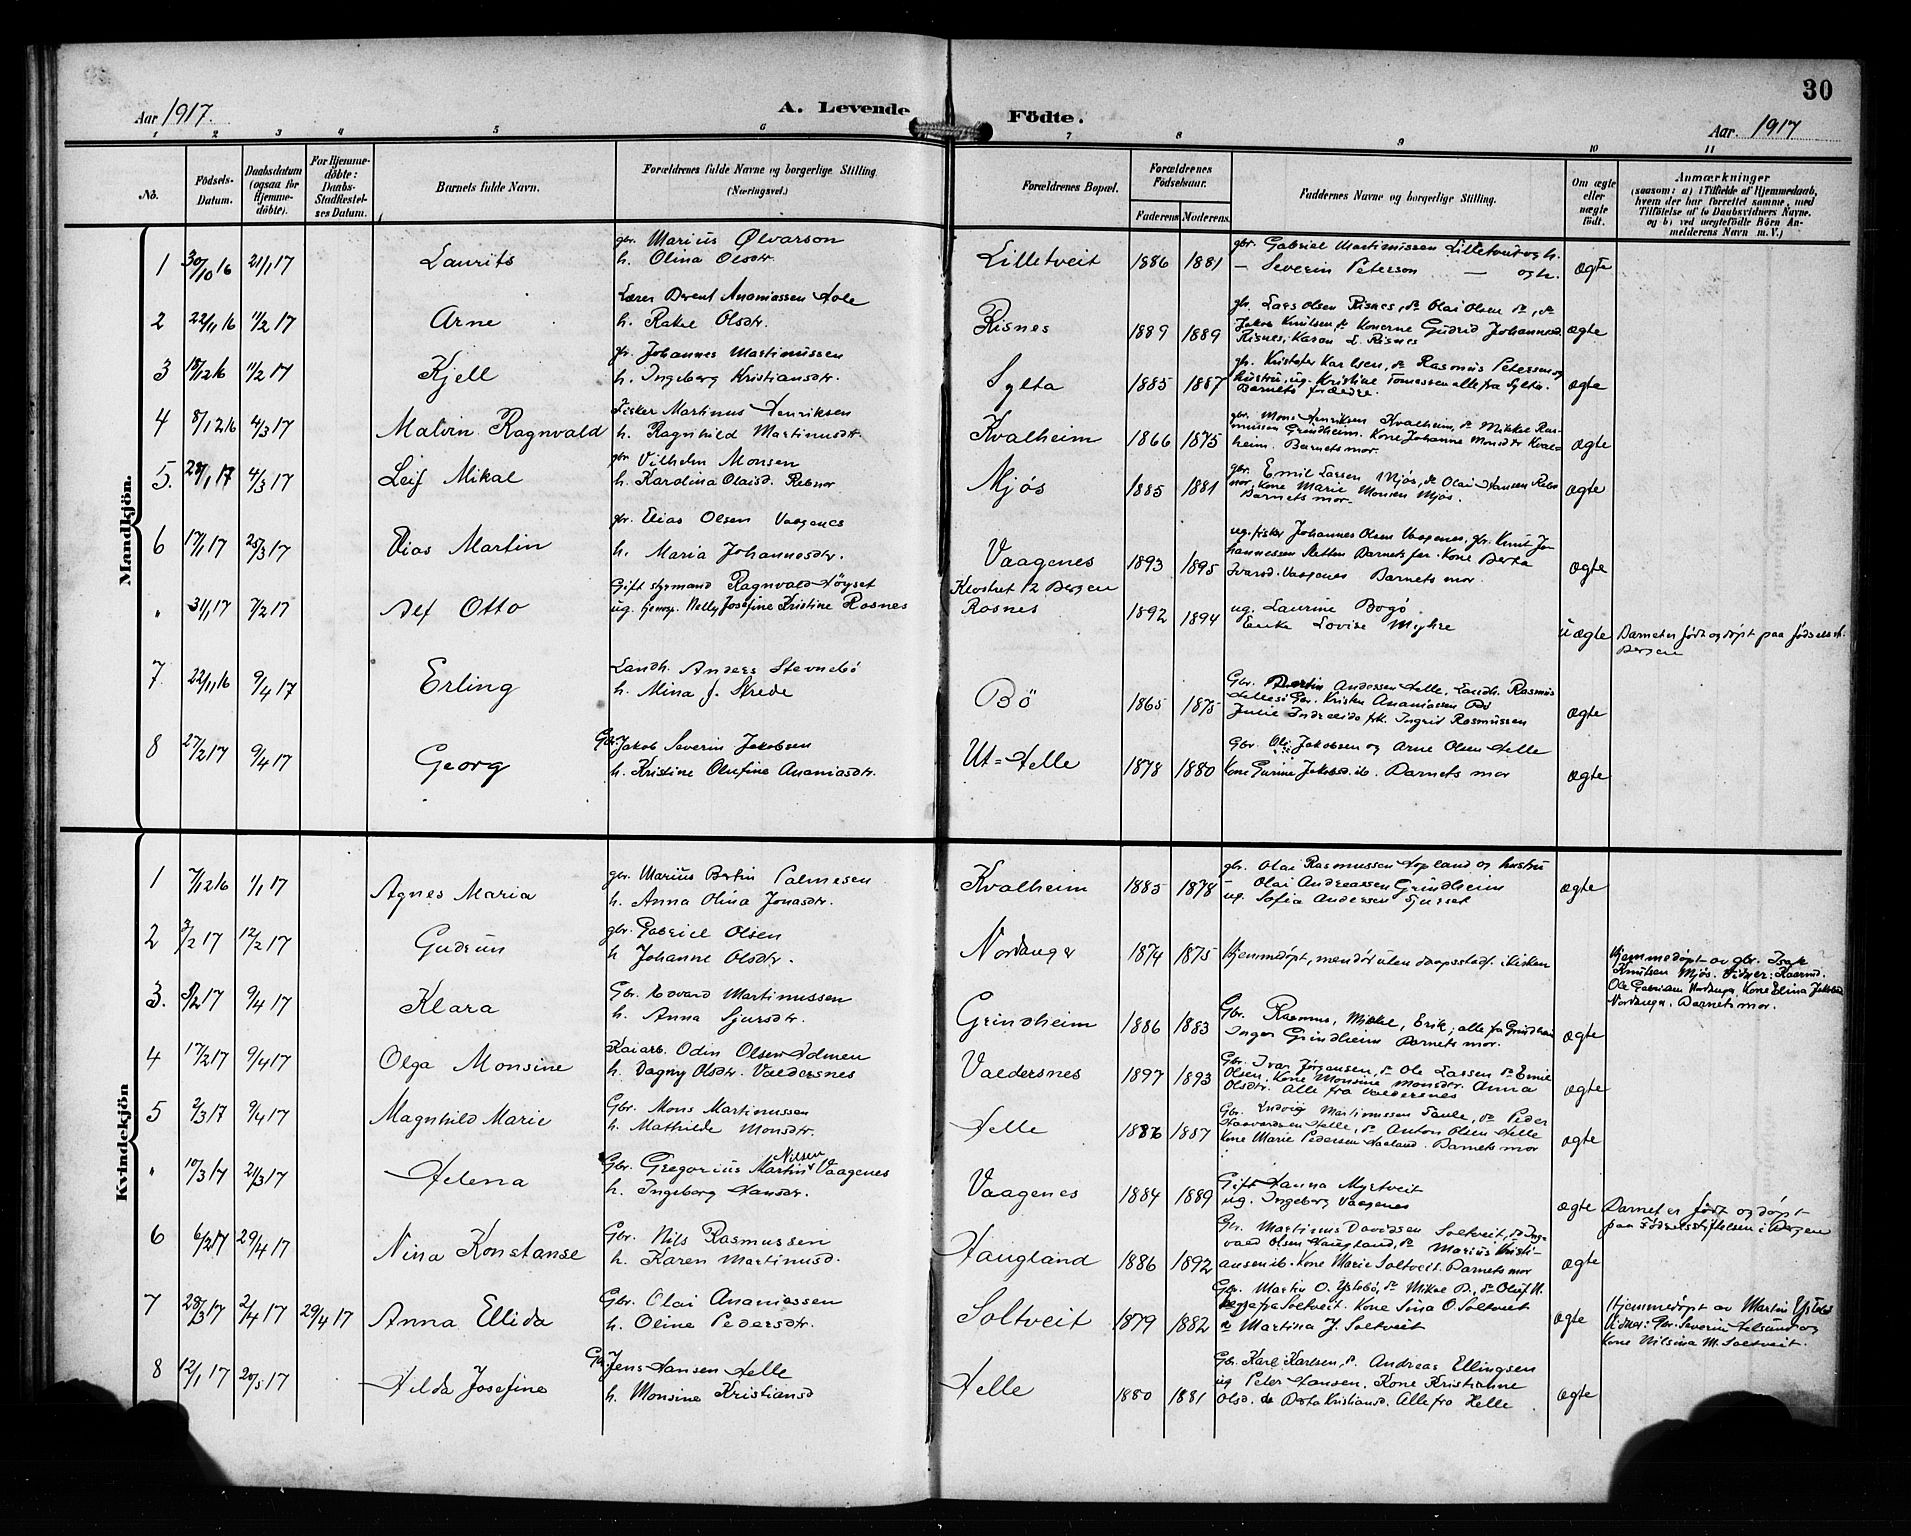 30
Aar 1917.
A. Levende Födte.
Aar 1917
1 2 3 4 5 6 7 8 9 10 11
No.
Födsels-Datum.
Daabsdatum (ogsaa for Hjemme-döbte).
For Hjemme-döbte: Daabs-Stadfæstel-ses Datum.
Barnets fulde Navn.
Forældrenes fulde Navne og borgerlige Stilling. (Næringsvei.)
Forældrenes Bopæl.
Forældrenes Födselsaar.
Faderens Moderens
Faddernes Navne og borgerlige Stilling.
Om ægte eller uægte födt.
Anmærkninger
(saasom: a) i Tilfælde af Hjemmedaab, hvem der har forrettet samme, med Tilföielse af to Daabsvidners Navne, og b) ved uægtefödte Börn An-melderens Navn m. V.)
Mandkjön.
1 30/10 16 21/1 17 Laurits
gbr. Marius Ølvarson
h. Olina Olsdtr.
Lilletveit 1886 1881
gbr. Gabriel Martinussen Lilletveit og h.
— Severin Peterson — og h.
ægte
2 22/11 16 11/2 17 Arne
Lærer Berent Ananiassen Hole
h. Rakel Olsdtr.
Risnes 1889 1889
gbr. Lars Olsen Risnes, do Olai Olsen do, do
Jakob Knutsen, do Konerne Gudrid Johannesd.
Risnes, Karen L. Risnes
ægte
3 18/12 16 11/2 17 Kjell
gbr. Johannes Martinussen
h. Ingeborg Kristiansdtr.
Sylta 1885 1887
gbr. Kristofer Karlsen, do Rasmus Petersen og
hustru, ug. Kristine Tomassen alle fra Sylta.
Barnets forældre.
ægte
4 8/12 16 4/3 17 Malvin Ragnvald
Fisker Martinus Henriksen
h. Ragnhild Martinusdtr.
Kvalheim 1866 1875
gbr. Mons Henriksen Kvalheim, do Mikkel Ras-
mussen Grindheim. Kone Johanne Monsdtr Kval-
heim. Barnets mor.
ægte
5. 28/1 17 4/3 17 Leif Mikal
gbr. Vilhelm Monsen
h. Karolina Olaisd. Rebnor
Mjös 1885 1881
gbr. Emil Larsen Mjös, do Olai Hansen Reb-
nor, Kone Marie Monsen Mjös.
Barnets mor.
ægte
6 17/1 17 25/3 17 Elias Martin
gbr. Elias Olsen Vaagenes
h. Maria Johannesdtr.
Vaagenes 1893 1895
ug. fisker Johannes Olsen Vaagenes, gbr. Knut Jo-
hannessen Barnets far. Kone Berta
Ivarsd. Vaagenes Barnets mor.
ægte
" 31/1 17 7/2 17 Alf Otto
Gift styrmand Ragnvald Höyset
ug. Nelly Josefine Kristine Rosnes
Klostret 12 Bergen
Rosnes 1892 1894
ug. Laurine Bogö
Enke Lovise Myhre
uægte
Barnet er födt og döpt paa födselsst. Bergen
7. 22/11 16 9/4 17 Erling
Landh. Anders Stevnebö
h. Mina J. Skrede
Bö 1865 1875
Gbr. Bertin Andersen Helle, Landh. Rasmus
Helles. Gbr. Kristen Ananiassen Bö
Julie Indreeide frk. Ingrid Rasmussen
ægte
8 27/2 17 9/4 17 Georg
Gbr. Jakob Severin Jakobsen
h. Kristine Olufine Ananiasdtr.
Ut-Helle 1878 1880
Gbr. Ole Jakobsen og Arne Olsen Helle
Kone Gurine Jakobsd. ib. Barnets mor
ægte
Kvindekjön
1 7/12 16 1/1 17 Agnes Maria
gbr. Marius Bertin Palmesen
h. Anna Olina Jonasdtr.
Kvalheim 1885 1878
gbr. Olai Rasmussen Hopland og hustru
Olai Andreassen Grindheim
ug. Sofia Andersen
ægte
2 3/2 17 12/2 17 Gudrun
gbr. Gabriel Olsen
h Johanne Olsdtr.
Nordanger 1874 1875
Hjemmedöpt, men dör uten daapsstadf. i kirken
Hjemmedöpt av gbr. Isak
Knutsen Mjös. Vidner:
Ole Kone Elina Jakobsd
Barnets mor.
3. 8/2 17 9/4 17 Klara
Gbr. Edvard Martinussen
h. Anna Sjursdtr.
Grindheim 1886 1883
Gbr. Rasmus, Mikkel, Erik, alle fra Grindheim
Inger Grindheim Barnets mor.
ægte
4 17/2 17 9/4 17 Olga Monsine
Kaiarb. Odin Olsen Holmen
h. Dagny Olsdtr. Valdersnes
Valdersnes 1897 1893
Gbr. Ivar Jörgensen, do Ole Larsen do Emil
Olsen. Kone Monsine Monsdtr. Anna
Olsdtr. Alle fra Valdersnes
ægte
5 2/3 17 9/4 17 Magnhild Marie
Gbr. Mons Martinussen
h. Mathilde Monsdtr.
Helle 1886 1887
Gbr. Ludvig Martinussen Taule, do Peder
Haavardsen Helle, do Anton Olsen Helle
Kone Marie Pedersen Haeland. Barnets mor
ægte
" 10/3 17 21/3 17 Helena
Gbr. Gregorius Martin Nilsen Vaagenes
h. Ingeborg Hansdtr.
Vaagenes 1884 1889
Gift Hanna Myrtveit
ug. Ingeborg Vaagenes
ægte
Barnet er födt og döpt
paa Födselsstiftelsen i Bergen
6 6/2 17 29/4 17 Nina Konstanse
Gbr. Nils Rasmussen
h. Karen Martinusd.
Haugland 1886 1892
Gbr. Martinus Davidsen Soltveit, do Ing-
vald Olsen Haugland, do Marius Kristi-
ansen ib. Kone Marie Soltveit. Barnets mor
ægte
7 28/3 17 2/4 17 29/4 17 Anna Ellida
Gbr. Olai Ananiassen
h. Oline Pedersdtr.
Soltveit 1879 1882
Gbr. Martin O. Ystebö, do Mikal B., do Oluf H.
fra Soltveit. Kone Sina O. Soltveit
do Martina J. Soltveit
ægte
Hjemmedöpt av Martin Ystebö
Vidner: Gbr. Severin Helsund og
Kone Nilsina M. Soltveit.
8 12/1 17 20/5 17 Hilda Josefine
Gbr. Jens Hansen Helle
h. Monsine Kristiansd
Helle 1880 1881
Gbr. Karl Karlsen, do. Andreas Ellingsen
ug Peter Hansen. Kone Kristianne
Olsd. do Berta Kristiansd. Alle fra Helle
ægte